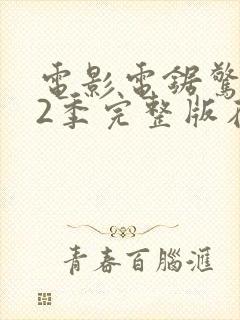 電影電鋸驚
2季完整版在
青春百腦滙